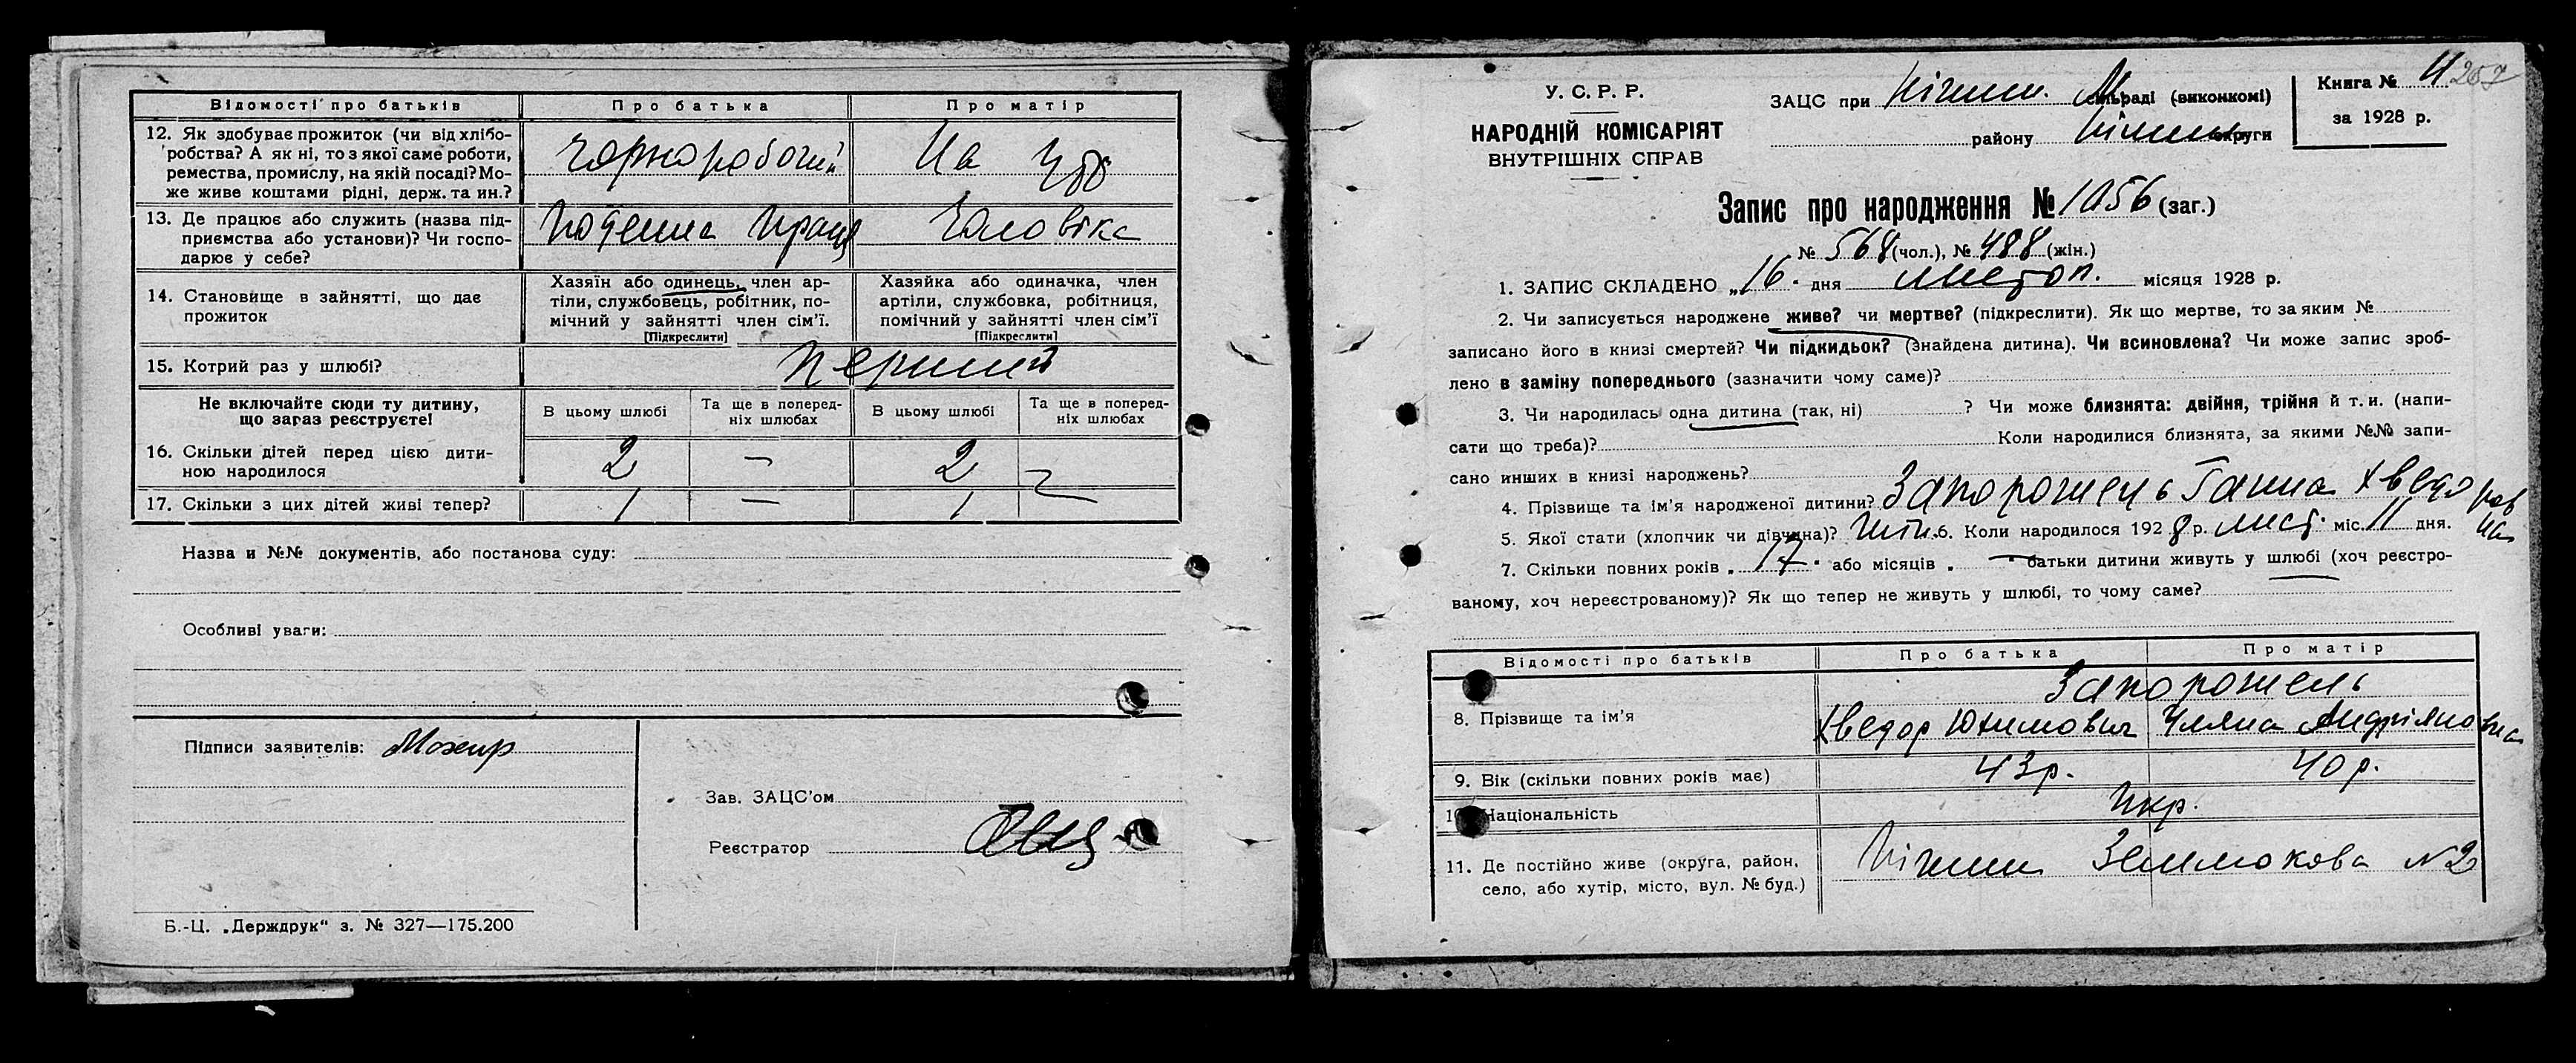 Відомості про батьків Про батька Про матір
12. Як здобуває прожиток (чи від хлібо-
робства? А як ні, то з якої саме роботи,
ремества, промислу, на якій посаді? Мо-
же живе коштами рідні, держ. та ин.?
Чорноробочий На
13. Де працює або служить (назва під-
приємства або установи)? Чи госпо-
дарює у себе?
Поденна праця Чоловіка
14. Становище в зайнятті, що дає
прожиток
Хазяїн або одинець, член ар-
тіли, службовець, робітник, по-
мічний у зайнятті член сім'ї.
[Підкреслити]
Хазяйка або одиначка, член
артіли, службовка, робітниця,
помічний у зайнятті член сім'ї
[Підкреслити]
15. Котрий раз у шлюбі? Перший
Не включайте сюди ту дитину,
що зараз реєструєте!
В цьому шлюбі Та ще в поперед-
ніх шлюбах В цьому шлюбі Та ще в поперед-
ніх шлюбах
16. Скільки дітей перед цією дити-
ною народилося 2 — 2 —
17. Скільки з цих дітей живі тепер? 1 — 1
Назва и №№ документів, або постанова суду:
Особливі уваги:
Підписи заявителів:
Зав. ЗАЦС'ом
Реєстратор
Б.-Ц. „Держдрук“ з. № 327—175.200
У. С. Р. Р.
НАРОДНІЙ КОМІСАРІЯТ
ВНУТРІШНІХ СПРАВ
ЗАЦС при Ніжин. М сільраді (виконкомі)
району Ніжин округи
Книга № 11
за 1928 р.
257
Запис про народження № 1056 (заг.)
№ 568 (чол.), № 488 (жін.)
1. ЗАПИС СКЛАДЕНО „16" дня листоп. місяця 1928 р.
2. Чи записується народжене живе? чи мертве? (підкреслити). Як що мертве, то за яким №
записано його в книзі смертей? Чи підкидьок? (знайдена дитина). Чи всиновлена? Чи може запис зроб-
лено в заміну попереднього (зазначити чому саме)?
3. Чи народилась одна дитина (так, ні) ? Чи може близнята: двійня, трійня й т. и. (напи-
сати що треба)? Коли народилися близнята, за якими №№ запи-
сано инших в книзі народжень?
4. Прізвище та ім'я народженої дитини? Запорожець Ганна Хведоровна
5. Якої стати (хлопчик чи дівчина)? жін. 6. Коли народилося 1928 р. лист. міс. 11 дня.
7. Скільки повних років „17" або місяців „—" батьки дитини живуть у шлюбі (хоч реєстро-
ваному, хоч нереєстрованому)? Як що тепер не живуть у шлюбі, то чому саме?
Відомості про батьків Про батька Про матір
Запорожець
8. Прізвище та ім'я Хведор Юхимович Уляна Андріяновна
9. Вік (скільки повних років має) 43 р. 40 р.
10. Національність Укр.
11. Де постійно живе (округа, район,
село, або хутір, місто, вул. № буд.)
Ніжин № 2